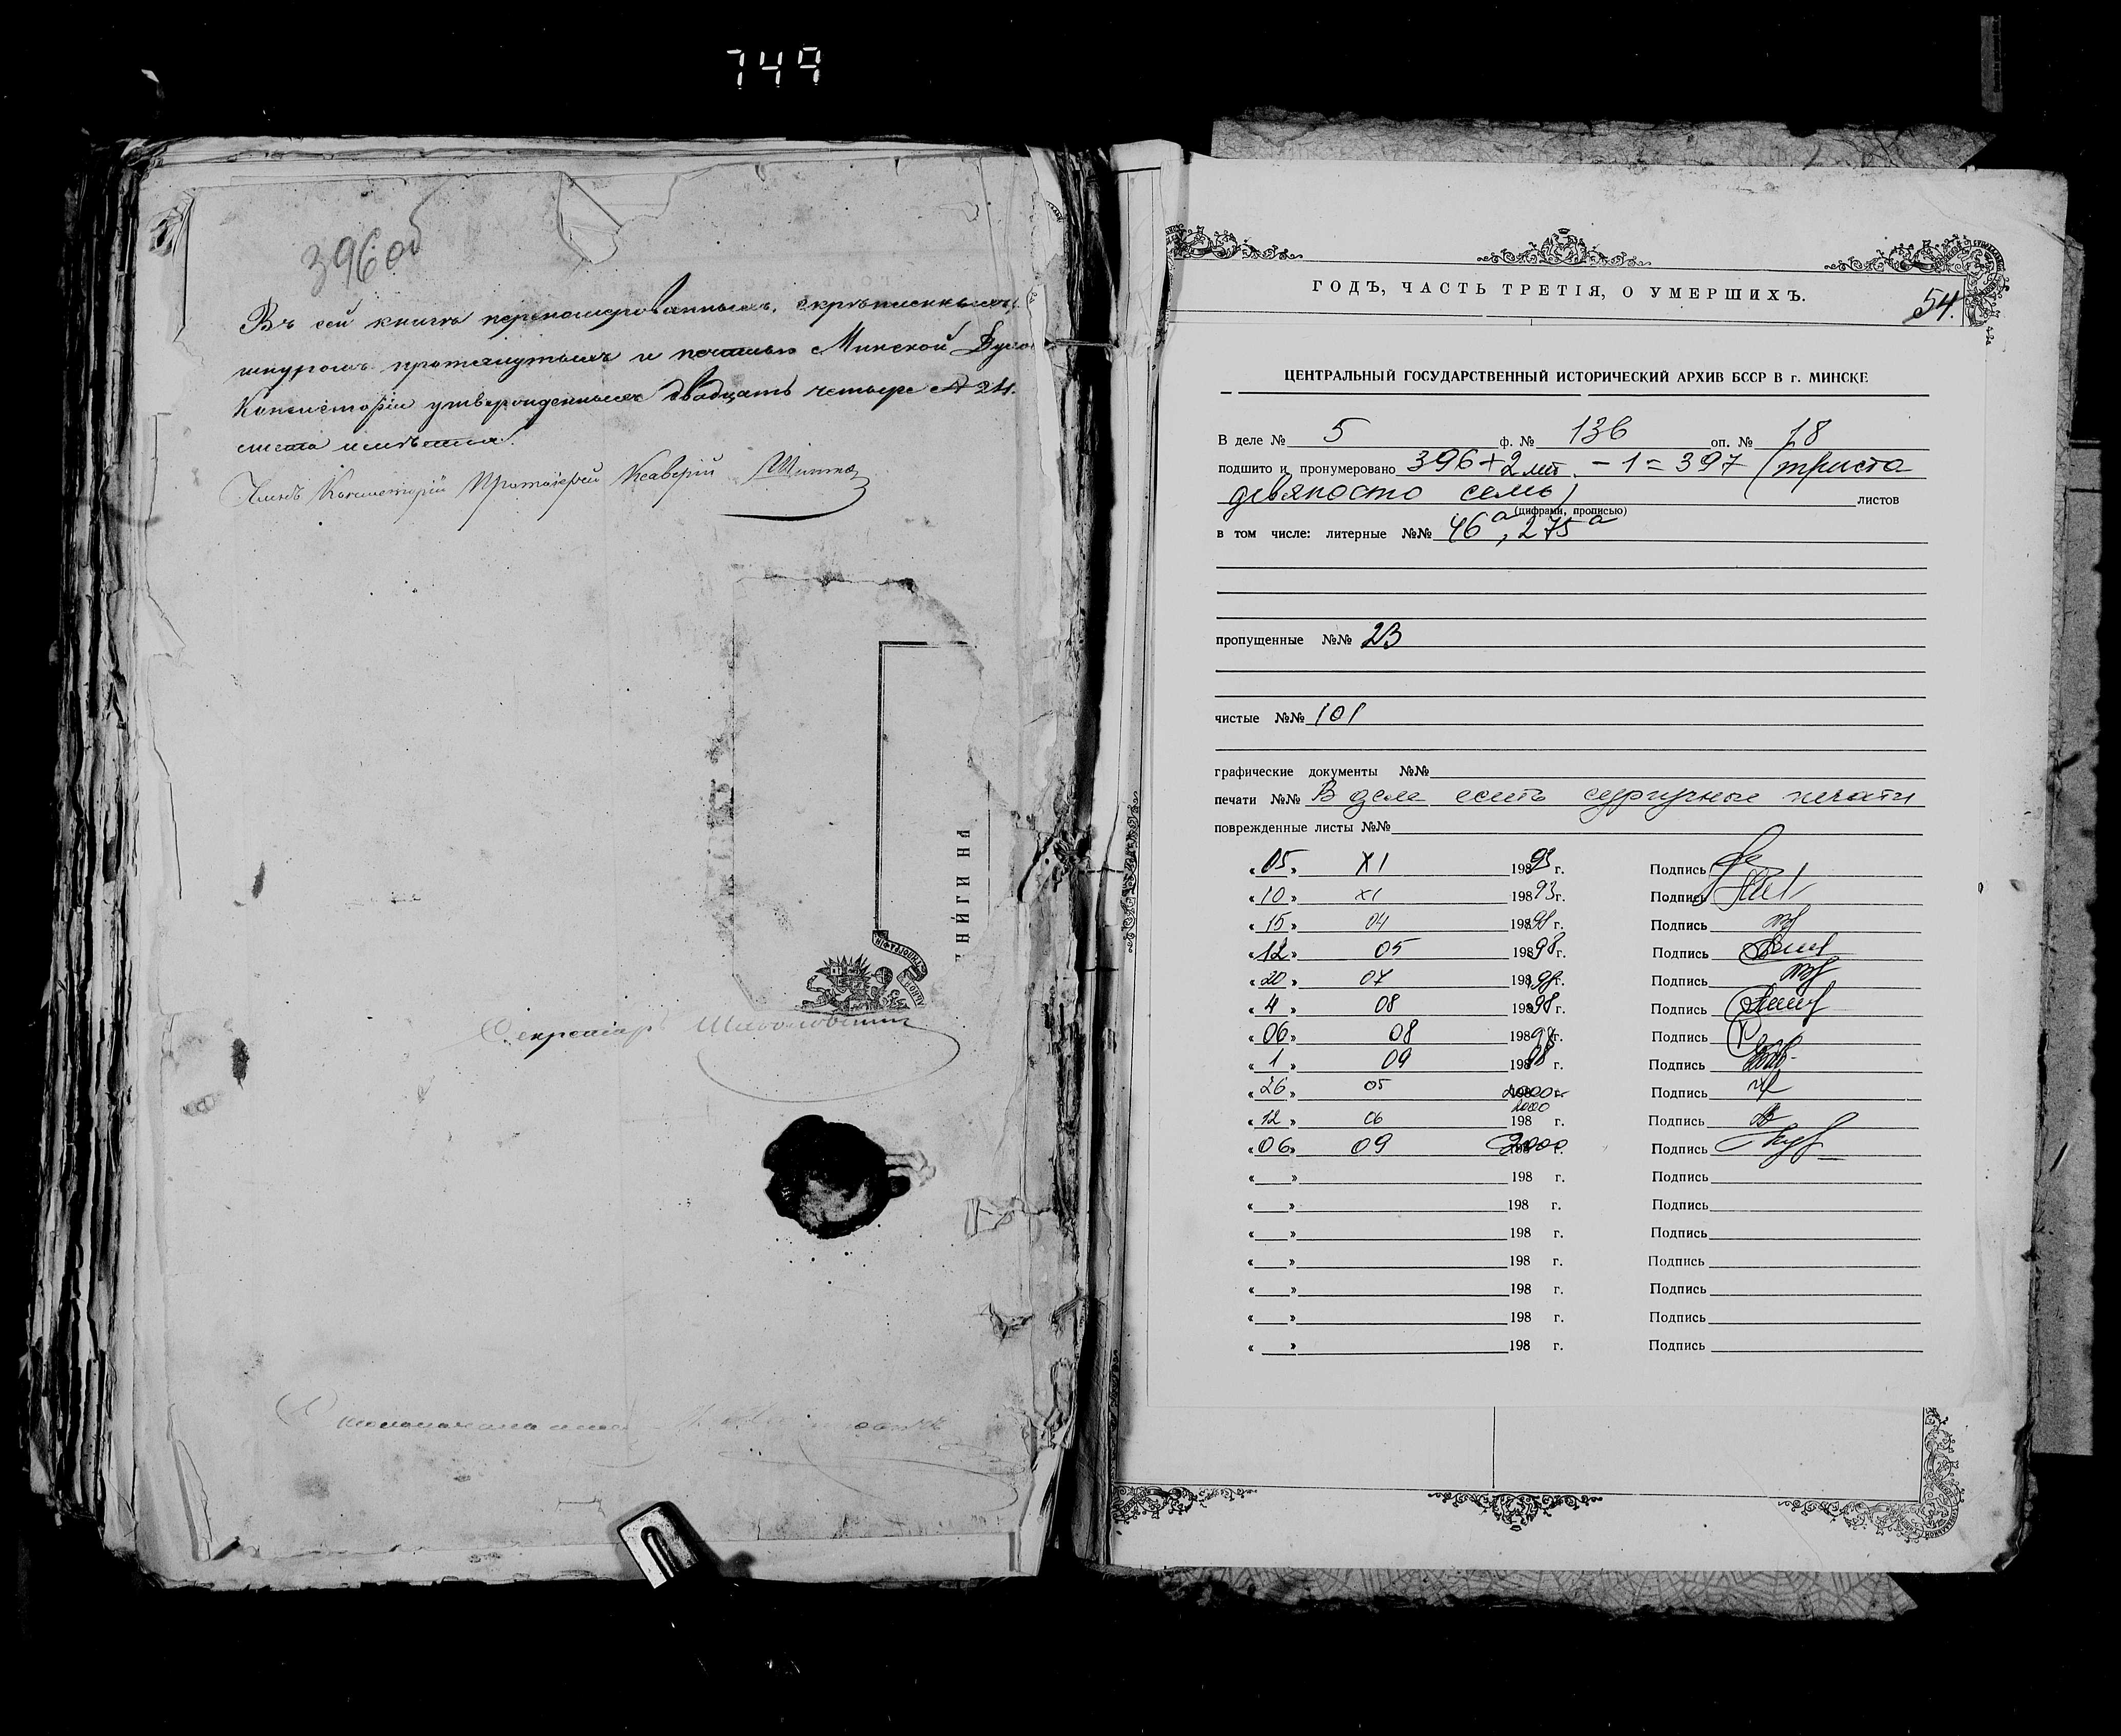 749
396 об
Въ сей книгѣ перенумерованныхъ, скрѣпленныхъ,
шнуромъ протянутыхъ и печатью Минской Духо
Консисторіи утвержденныхъ двадцать четыре 24.
листа имѣется.
Членъ Консисторіи Протоіерей Ксаверій
Секретарь
ГОДЪ, ЧАСТЬ ТРЕТІЯ, О УМЕРШИХЪ.
54.
ЦЕНТРАЛЬНЫЙ ГОСУДАРСТВЕННЫЙ ИСТОРИЧЕСКИЙ АРХИВ БССР В г. МИНСКЕ
В деле № 5 ф. № 136 оп. № 18
подшито и пронумеровано 396+2 лит. - 1 = 397 (триста
девяносто семь) листов
(цифрами, прописью)
в том числе: литерные №№ 46а, 275а
пропущенные №№ 23
чистые №№ 101
графические документы №№
печати №№ В деле есть сургучные печати
поврежденные листы №№
«05» XI 19893 г. Подпись
«10» XI 19893 г. Подпись
«15» 04 19898 г. Подпись
«12» 05 19898 г. Подпись
«20» 07 19898 г. Подпись
«4» 08 19898 г. Подпись
«06» 08 19898 г. Подпись
«1» 09 19898 г. Подпись
«26» 05 2000 г. Подпись
2000
«12» 06 198 г. Подпись
«06» 09 2000 г. Подпись
« » 198 г. Подпись
« » 198 г. Подпись
« » 198 г. Подпись
« » 198 г. Подпись
« » 198 г. Подпись
« » 198 г. Подпись
« » 198 г. Подпись